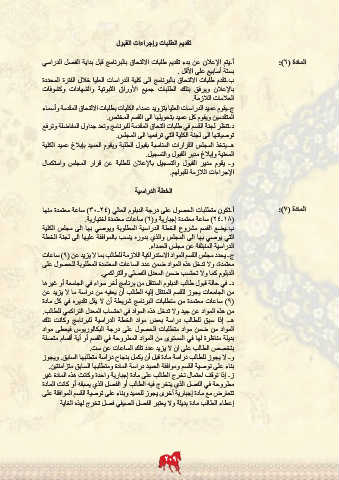 تقديم الطلبات وإجراءات القبول
المادة (٦):
أ-يتم الإعلان عن بدء تقديم طلبات الالتحاق بالبرنامج قبل بداية الفصل الدراسي
بستة أسابيع على الأقل .
ب-تقدم طلبات الالتحاق بالبرنامج الى كلية الدراسات العليا خلال الفترة المحددة
بالإعلان ويرفق بتلك الطلبات جميع الأوراق الثبوتية والشهادات وكشوفات
العلامات اللازمة.
ج-يقوم عميد الدراسات العليا بتزويد عمداء الكليات بطلبات الالتحاق المقدمة وأسماء
المتقدمين ويقوم كل عميد بتحويلها الى القسم المختص.
د-تنظر لجنة القسم في طلبات التحاق المقدمة للبرنامج وتعد جداول المفاضلة وترفع
توصياتها الى لجنة الكلية التي ترفعها الى المجلس.
هـ-يتخذ المجلس القرارات المناسبة بقبول الطلبة ويقوم العميد بإبلاغ عميد الكلية
المعنية وإبلاغ مدير القبول والتسجيل.
و- يقوم مدير القبول والتسجيل بالإعلان للطلبة عن قرار المجلس واستكمال
الإجراءات اللازمة لقبولهم.
الخطة الدراسية
المادة (٧):
أ-تكون متطلبات الحصول على درجة الدبلوم العالي (٢٤-٣٠) ساعة معتمدة منها
(١٨-٢٤) ساعة معتمدة إجبارية و(٦) ساعات معتمدة اختيارية.
ب-يضع القسم مشروع الخطة الدراسية المطلوبة ويوصي بها الى مجلس الكلية
الذي يوصي بها الى المجلس والذي بدوره ينسب بالموافقة عليها الى لجنة الخطة
الدراسية المنبثقة عن مجلس العمداء.
ج-يحدد مجلس القسم المواد الاستدراكية اللازمة للطالب بما لا يزيد عن (٩) ساعات
معتمدة، ولا تدخل هذه المواد ضمن عدد الساعات المعتمدة المطلوبة للحصول على
الدبلوم كما ولا تحتسب ضمن المعدل الفصلي والتراكمي.
د- في حالة قبول طالب الدبلوم المنتقل من برنامج آخر سواء في الجامعة أو غيرها
من الجامعات يجوز للقسم المنتقل إليه الطالب أن يعفيه من دراسة ما لا يزيد عن
(٩) ساعات معتمدة من متطلبات البرنامج شريطة أن لا يقل تقديره في كل مادة
من هذه المواد عن جيد ولا تدخل هذه المواد في احتساب المعدل التراكمي للطالب.
هـ- إذا سبق للطالب دراسة بعض مواد الخطة الدراسية للبرنامج وكانت تلك
المواد من ضمن مواد متطلبات الحصول على درجة البكالوريوس فيعطى مواد
بديلة مناظرة لها في المستوى من المواد المطروحة في القسم أو أية أقسام متصلة
بتخصص الطالب على أن لا يزيد عدد تلك الساعات عن ست.
و- لا يجوز للطالب دراسة مادة قبل أن يكمل بنجاح دراسة متطلبها السابق. ويجوز
بناء على توصية القسم وموافقة العميد دراسة المادة ومتطلبها السابق متزامنتين.
ز- إذا توقف احتمال تخرج الطالب على مادة إجبارية واحدة وكانت هذه المادة غير
مطروحة في الفصل الذي يتخرج فيه الطالب أو الفصل الذي يسبقه أو كانت المادة
تتعارض مع مادة إجبارية أخرى يجوز للعميد وبناء على توصية القسم الموافقة على
إعطاء الطالب مادة بديلة ولا يعتبر الفصل الصيفي فصل تخرج لهذه الغاية.